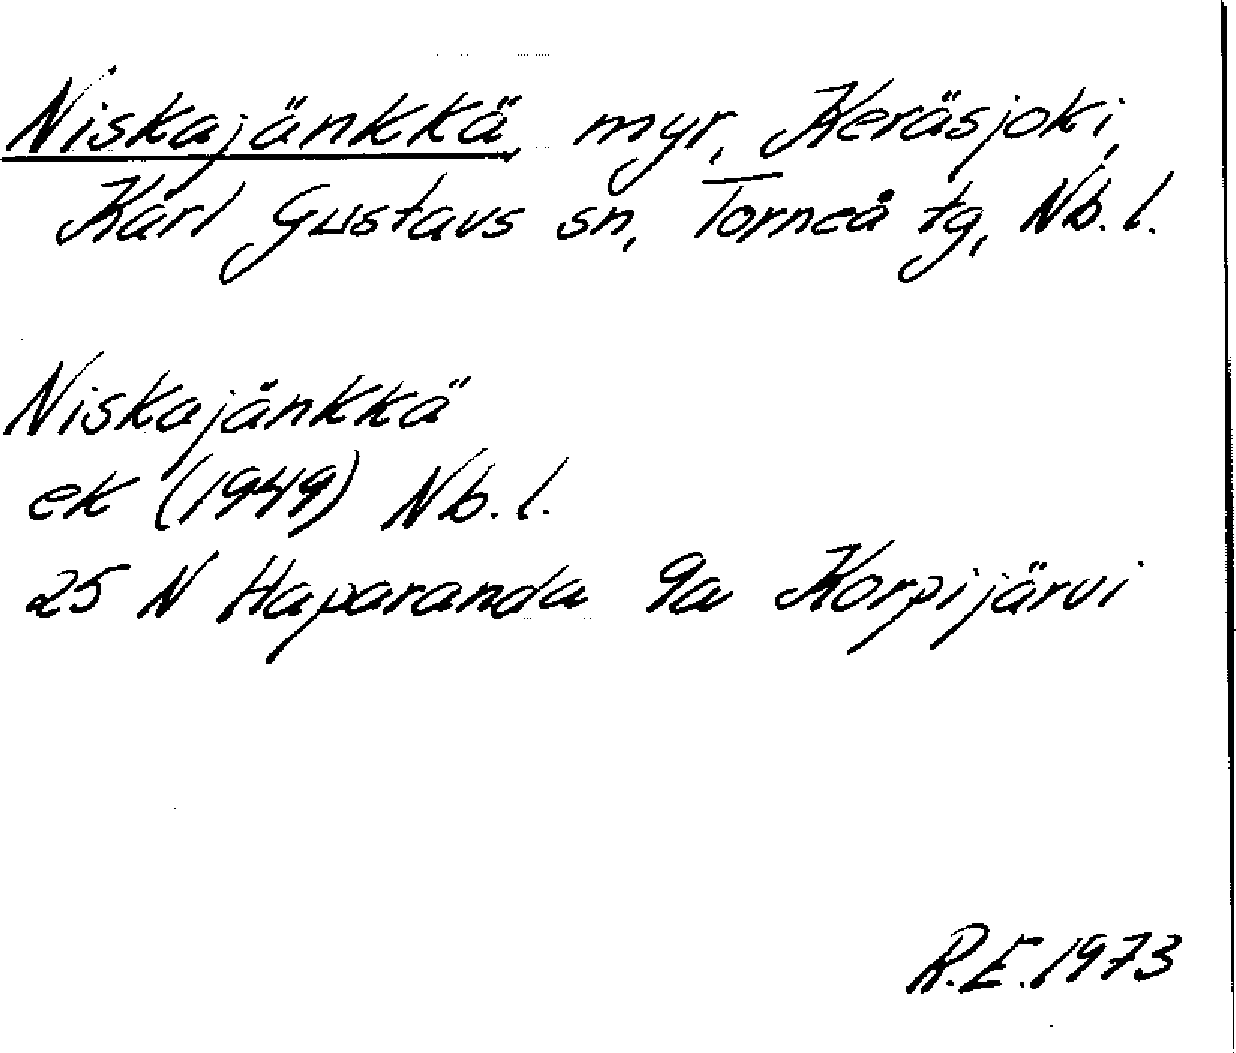 Niskajänkkä, myr, Keräsjoki,
Karl Gustavs sn, Torneå tg, Nb. l.
Niskajänkkä
ek (1949) Nb. l.
25 N Haparanda 9a Korpijärvi
R.E. 1973